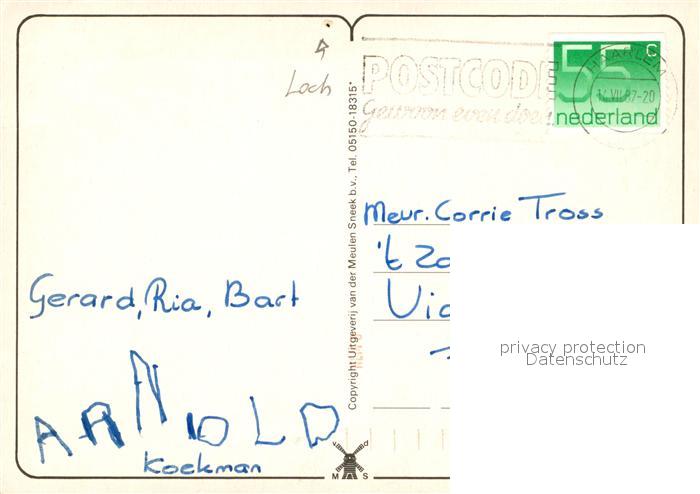 Loch
POSTCODE
Gewoon even doen
55 c
nederland
HAARLEM
14 VII 87-20
Copyright Uitgeverij van der Meulen Sneek b.v., Tel. 05150-18315*
Meur. Corrie Tross
't Zo
Vi
privacy protection
Datenschutz
Gerard, Ria, Bart
ARNOLD
Koekman
v d
M S